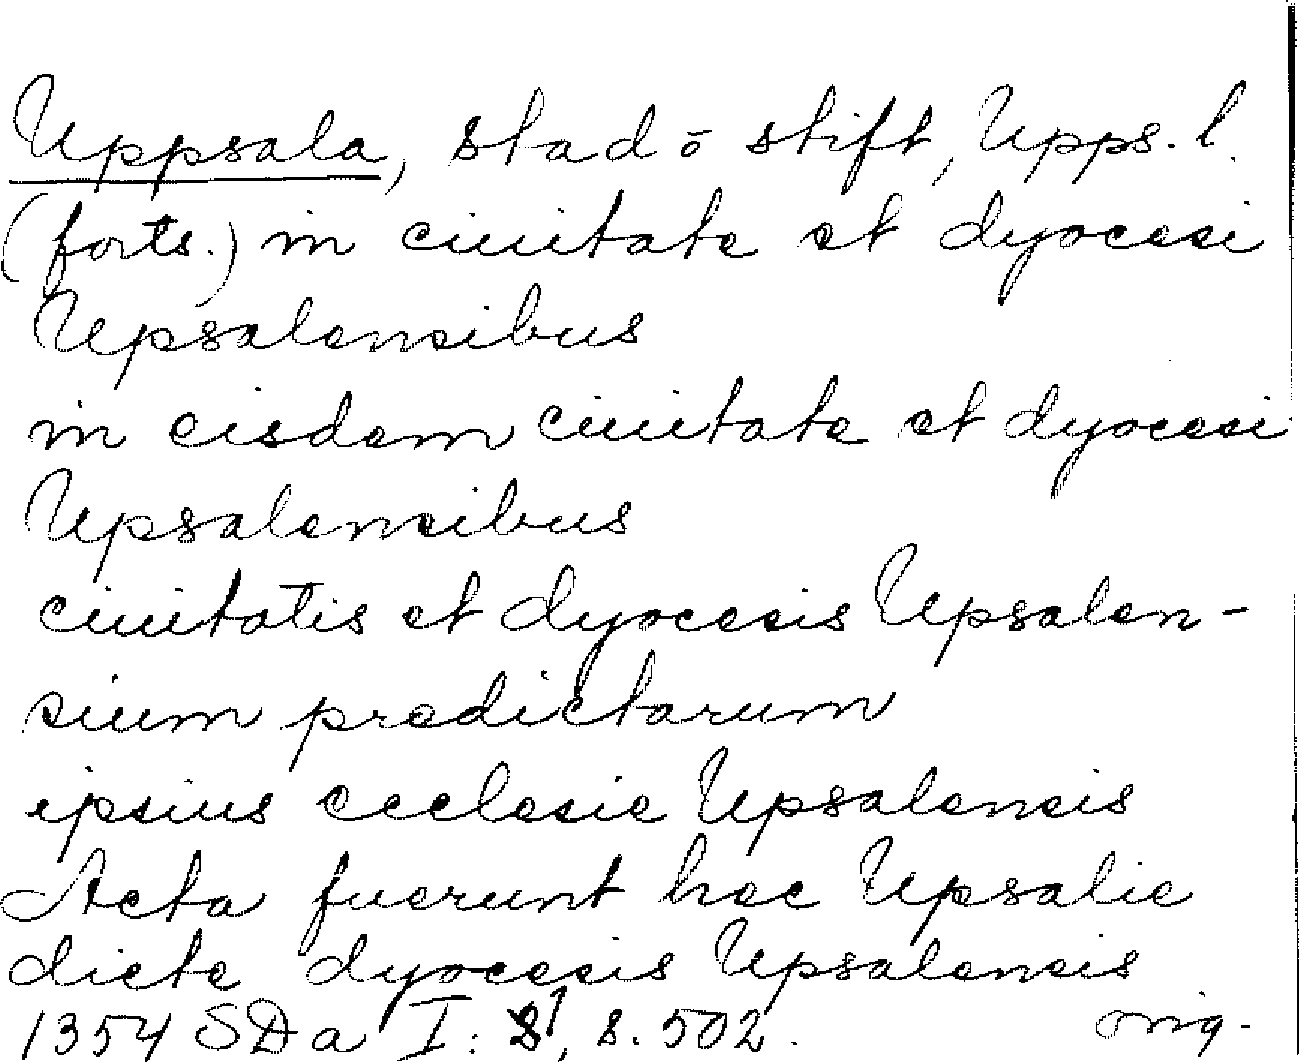 Uppsala, stad o stift, Upps. l.
(forts.) in ciuitate et dyocesi
Upsalensibus
in eisdem ciuitate et dyocesi
Upsalensibus
ciuitatis et dyocesis Upsalen-
sium predictarum
ipsius ecclesie Upsalensis
Acta fuerunt hec Upsalie
dicte dyocesis Upsalensis
1354 SDa I: 1, s. 502. orig.